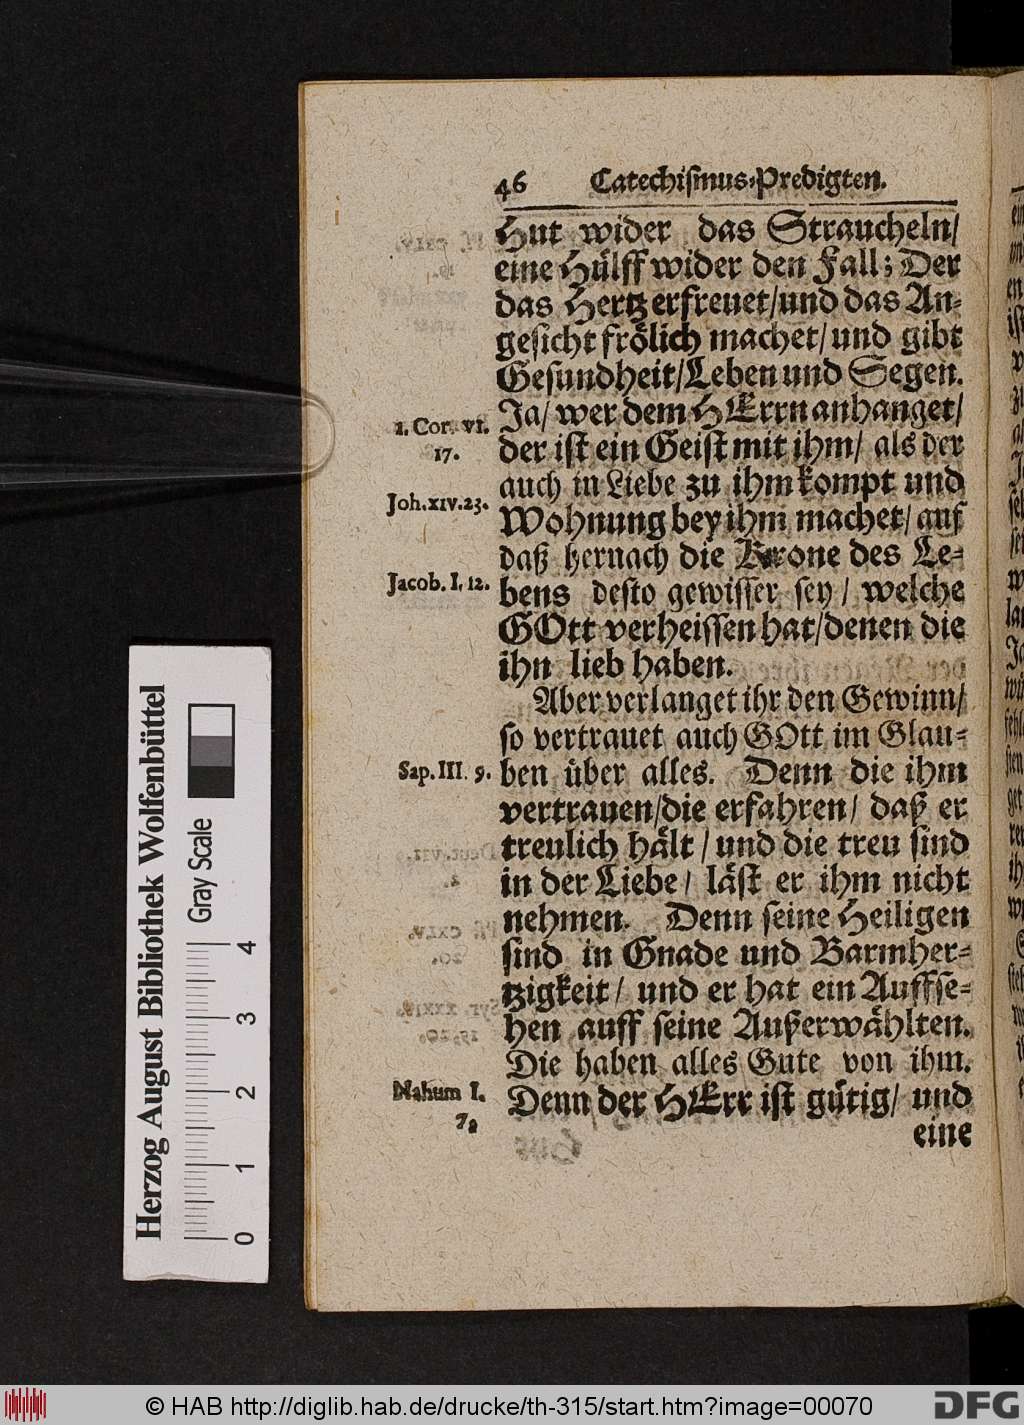 46 Catechismus-Predigten.
Hut wider das Straucheln/
eine Hülff wider den Fall; Der
das Hertz erfreuet/und das An-
gesicht frölich machet/und gibt
Gesundheit/Leben und Segen.
Ja/ wer dem HErrn anhanget/
1. Cor. VI.
17.
der ist ein Geist mit ihm/ als der
auch in Liebe zu ihm kompt und
Joh. XIV. 23.
Wohnung bey ihm machet/ auf
daß hernach die Krone des Le-
Jacob. I. 12.
bens desto gewisser sey/ welche
GOtt verheissen hat/denen die
ihn lieb haben.
Aber verlanget ihr den Gewinn/
so vertrauet auch GOtt im Glau-
Sap. III. 9.
ben über alles. Denn die ihm
vertrauen/die erfahren/ daß er
treulich hält/ und die treu sind
in der Liebe/ läst er ihm nicht
nehmen. Denn seine Heiligen
sind in Gnade und Barmher-
tzigkeit/ und er hat ein Auffse-
hen auff seine Außerwählten.
Die haben alles Gute von ihm.
Nahum I.
7.
Denn der HErr ist gütig/ und
eine
Herzog August Bibliothek Wolfenbüttel
Gray Scale
0 1 2 3 4
© HAB http://diglib.hab.de/drucke/th-315/start.htm?image=00070
DFG